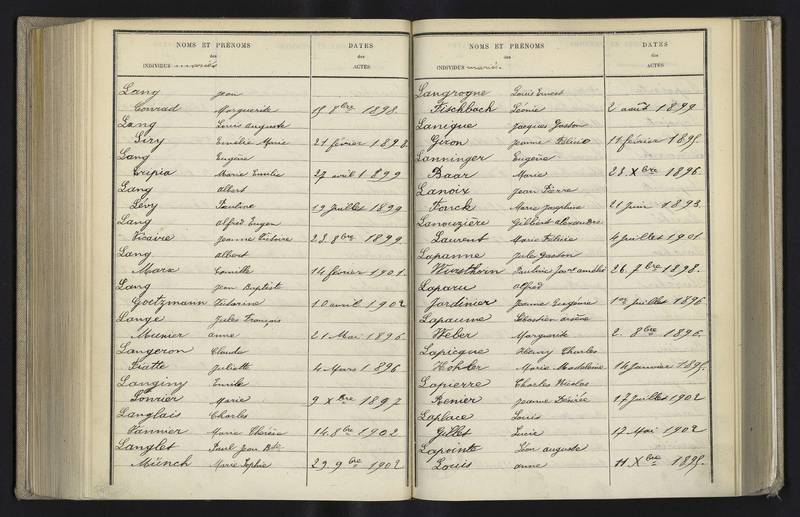 NOMS ET PRÉNOMS
des
INDIVIDUS mariés
DATES
des
ACTES
Lang Jean
Conrad Marguerite 15 8bre 1898
Lang Louis Auguste
Séry Emélie Marie 21 février 1898
Lang Eugène
Marie Emilie 27 avril 1899
Lang Albert
Lévy Pauline 19 Juillet 1899
Lang Alfred Eugen
Vicaire Jeanne Victoire 23. 8bre 1899
Lang Albert
Marx Camille 14 février 1901
Lang Jean Baptiste
Goetzmann Victorine 10 avril 1902
Lange Jules François
Meunier Anne 21 Mai 1896
Langeron Claude
Fiatte Juliette 4 Mars 1896
Langiny Emile
Marie 9 Xbre 1897
Langlais Charles
Vannier Marie Thérèse 14. 8bre 1902
Langlet Paul Jean Bte
Münch Marie Sophie 29. 9bre 1902
NOMS ET PRÉNOMS
des
INDIVIDUS mariés.
DATES
des
ACTES
Langrogne Louis Ernest
Fischbach Léonie 2 août 1899
Lanique Jacques Gaston
Giron Jeanne 11 février 1895.
Lanninger Eugène
Baar Marie 23. Xbre 1896.
Lanoix Jean Pierre
Fonck Marie Joséphine 21 Juin 1893.
Lanouzière Gilbert Alexandre
Laurent Marie Félicie 4 Juillet 1901.
Lapanne Jules Gaston
Wursthorn Pauline 26. 7bre 1898.
Laparu Alfred
Jardinier Jeanne Eugénie 1er Juillet 1896
Lapaume Sébastien Arsène
Weber Marguerite 2. 8bre 1896.
Lapicque Henry Charles
Hohler Marie Madeleine 14 Janvier 1895.
Lapierre Charles Nicolas
Renier Jeanne Désirée 17 Juillet 1902
Laplace Louis
Gillet Lucie 17 Mai 1902
Lapointe Léon Auguste
Louis Anne 11 Xbre 1895.